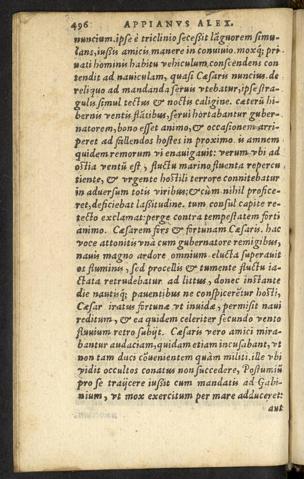 496 APPIANVS ALEX.
nuncium. ipse è triclinio secessit lãguorem simu-
lans, iussis amicis manere in conuiuio. moxq; pri-
uati hominis habitu vehiculum conscendens con
tendit ad nauiculam, quasi Cæsaris nuncius. de
reliquo ad mandanda seruis vtebatur, ipse stra-
gulis simul tectus & noctis caligine. cæterũ hi-
bernis ventis flãtibus, serui hortabantur guber-
natorem, bono esset animo, & occasionem arri-
peret ad fallendos hostes in proximo. is amnem
quidem remorum vi enauigauit: verum vbi ad
ostia ventũ est, fluctu marino fluenta repercu
tiente, & vrgente hostili terrore connitebatur
in aduersum totis viribus: & cùm nihil profice-
ret, deficiebat lassitudine. tum consul capite re-
tecto exclamat: perge contra tempestatem forti
animo. Cæsarem fers & fortunam Cæsaris. hac
voce attonitis vna cum gubernatore remigibus,
nauis magno ardore omnium eluctata superauit
os fluminis, sed procellis & tumente fluctu ia-
ctata retrudebatur ad littus, donec instante
die nautisq; pauentibus ne conspiceretur hosti,
Cæsar iratus fortunæ vt inuidæ, permisit naui
reditum, & ea quidem celeriter secundo vento
fluuium retro subijt. Cæsaris vero amici mira-
bantur audaciam, quidam etiam incusabant, vt
non tam duci cõuenientem quàm militi. ille vbi
vidit occultos conatus non succedere, Postumiũ
pro se traijcere iussit cum mandatis ad Gabi-
nium, vt mox exercitum per mare adduceret:
aut